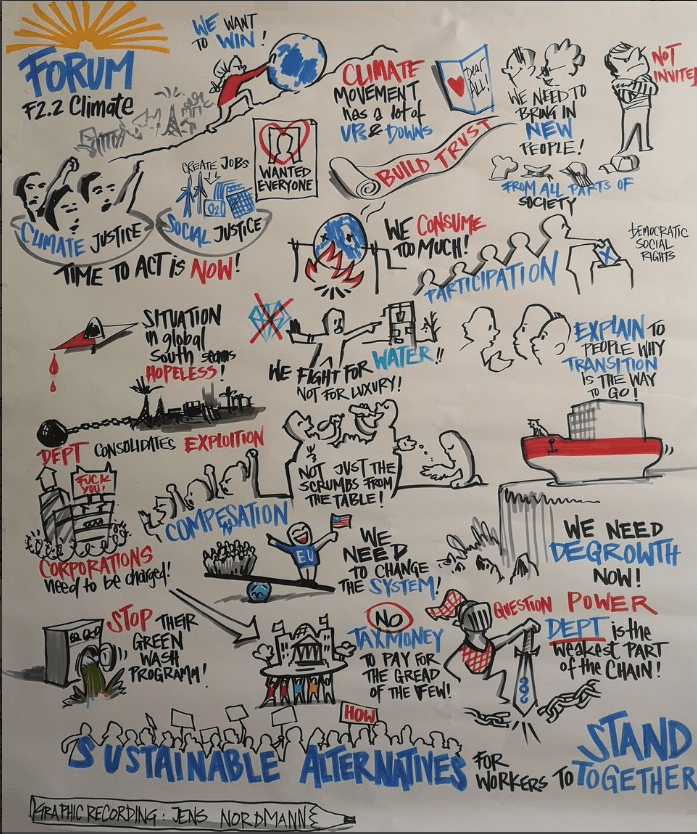 FORUM
F2.2 Climate
WE WANT
TO WIN!
CLIMATE
MOVEMENT
has a lot of
UPS & DOWNS
Dear
ALL!
WE NEED TO
BRING IN
NEW
PEOPLE!
NOT
INVITED
FROM ALL PARTS OF
SOCIETY
BUILD TRUST
WANTED
EVERYONE
CREATE JOBS
O2
CLIMATE JUSTICE
SOCIAL JUSTICE
TIME TO ACT is NOW!
WE CONSUME
TOO MUCH!
PARTICIPATION
DEMOCRATIC
SOCIAL
RIGHTS
SITUATION
in global
South seams
HOPELESS!
WE FIGHT FOR WATER!!
NOT FOR LUXURY!
EXPLAIN TO
PEOPLE WHY
TRANSITION
IS THE WAY
TO GO!
DEPT CONSOLIDATES EXPLOITION
NOT JUST THE
SCRUMBS FROM
THE TABLE!
FUCK
YOU!
CORPORATIONS
need to be charged!
COMPESATION
EU
WE
NEED
TO CHANGE
THE SYSTEM!
WE NEED
DEGROWTH
NOW!
STOP THEIR
GREEN
WASH
PROGRAMM!
NO
TAXMONEY
TO PAY FOR
THE GREAD
OF THE FEW!
QUESTION POWER
DEPT is the
weakest PART
of the CHAIN!
HOW
SUSTAINABLE ALTERNATIVES
FOR
WORKERS TO
STAND
TOGETHER
GRAPHIC RECORDING: JENS NORDMANN